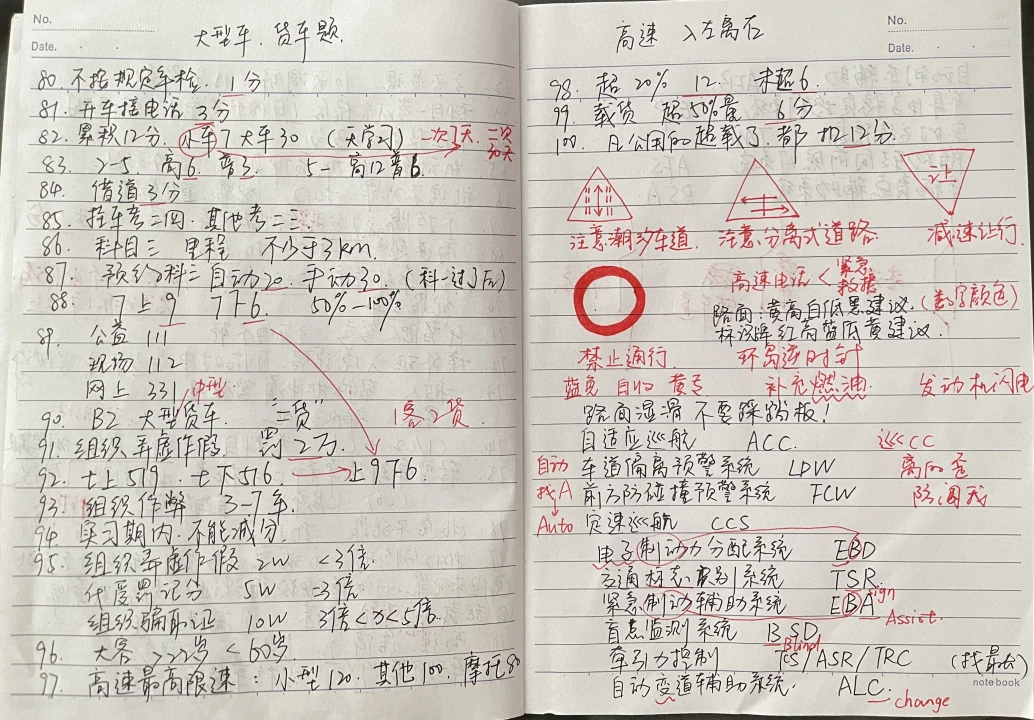 No.
Date.
大型车、货车题
80. 不按规定年检 1分
81. 开车接电话 3分
82. 累积12分. 小车7 大车30 (天学习) 一次7天. 二次30天
83. 2-5. 高6. 普3. 5- 高12普6.
84. 借道3分
85. 挂车考二四. 其他考二三.
86. 科目三 里程 不少于3km.
87. 预约科三 自动20. 手动30. (科一过了后)
88. 7上9 7下6. 50%-100%
89. 公益 111
现场 112
网上 331
中型
90. B2 大型货车. "三货" 1客2货
91. 组织弄虚作假 罚2万.
92. 七上519. 七下576. 上9下6
93. 组织作弊 3-7年.
94. 实习期内. 不能减分.
95. 组织弄虚作假 2W <3倍.
代受罚记分 5W =3倍.
组织骗取证 10W 3倍<x<5倍.
96. 大客 >22岁 < 60岁
97. 高速最高限速: 小型120. 其他100. 摩托80
高速 入左离右
No.
Date.
98. 超 20% 12. 未超6.
99. 载货 超50%量 6分
100. 凡公困的超载了.都扣12分.
让
注意潮汐车道. 注意分离式道路. 减速让行.
高速电话 < 紧急 救援
路面:黄高白低黑建议. (数字颜色)
标识牌红高蓝低黄建议.
禁止通行 环岛逆时针
蓝免 白归 黄亏 补充燃油. 发动机闪电
路面湿滑 不要踩踏板!
自适应巡航 ACC. 巡CC
自动 车道偏离预警系统 LDW 离的歪
找A 前方防碰撞预警系统 FCW 防闯我
Auto 定速巡航 CCS
电子制动力分配系统 EBD
交通标志识别系统 TSR.
sign
紧急制动辅助系统 EBA
Assist.
盲点监测系统 BSD
Blind
牵引力控制 TCS/ASR/TRC (找最长)
notebook
自动变道辅助系统. ALC.
change